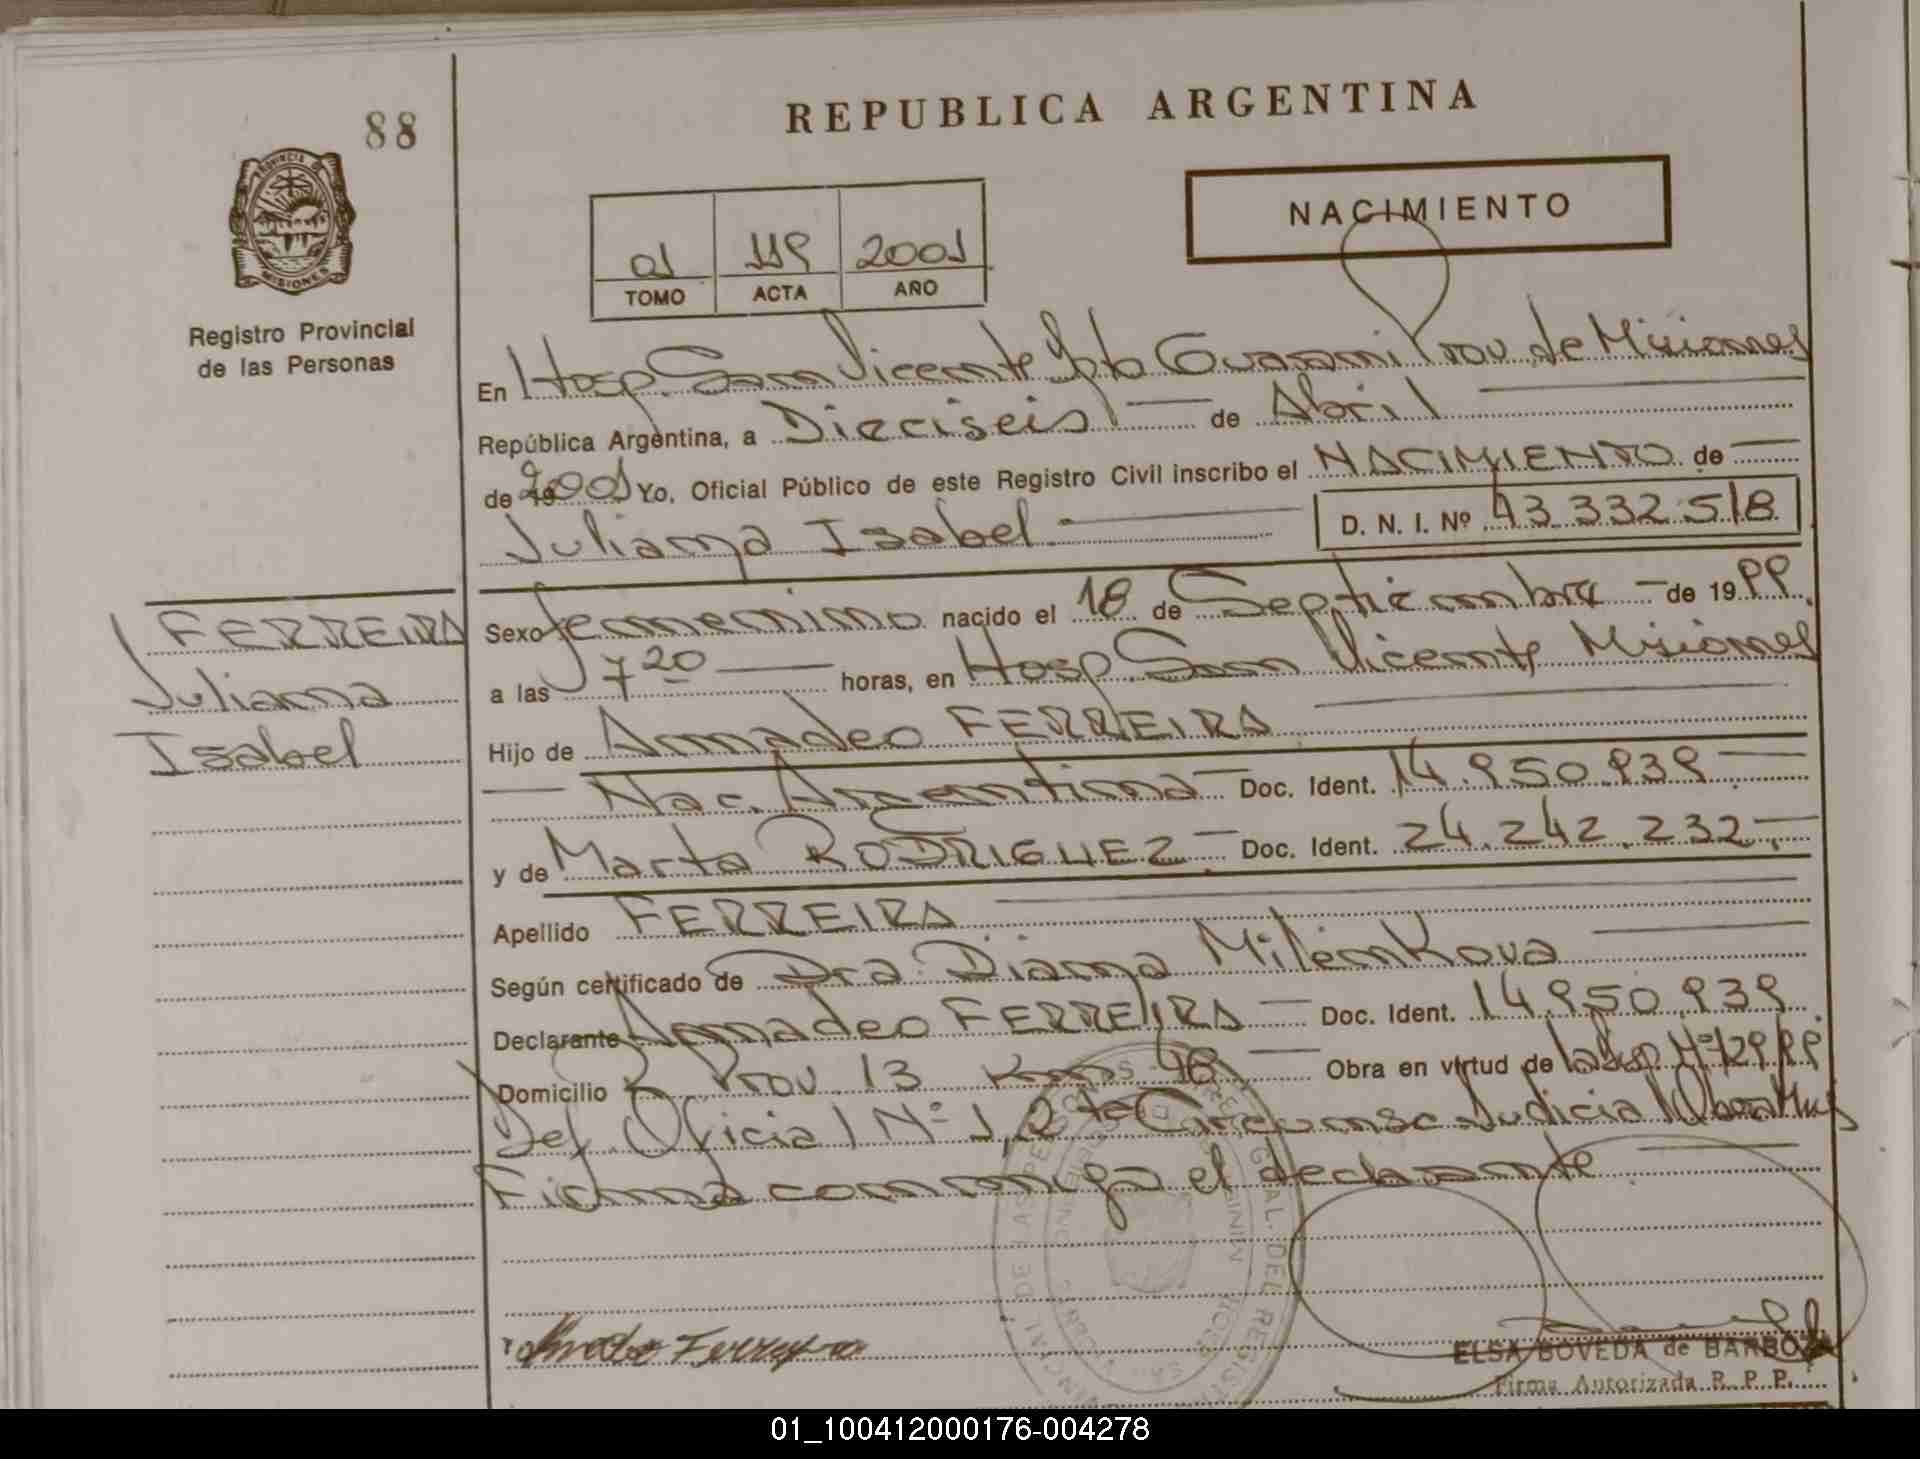 88
REPUBLICA ARGENTINA
NACIMIENTO
PROVINCIA DE
MISIONES
Registro Provincial
de las Personas
01 119 2001
TOMO ACTA AÑO
En Hosp. San Vicente Dpto Guarani Prov. de Misiones
República Argentina, a Dieciseis de Abril
de 2001 Yo, Oficial Público de este Registro Civil inscribo el NACIMIENTO de
Juliana Isabel. D. N. I. Nº 43 332 518
FERREIRA
Juliana
Isabel
Sexo femenino nacido el 18 de Septiembre de 1999.
a las 7 20 horas, en Hosp. San Vicente Misiones
Hijo de Amadeo FERREIRA
Nac. Argentina Doc. Ident. 14.950.939
y de Marta RODRIGUEZ. Doc. Ident. 24.242.232.
Apellido FERREIRA
Según certificado de Dra. Diana Milenkova
Declarante Amadeo FERREIRA Doc. Ident. 14.950.939
Domicilio R. Prov. 13 Kms 48 Obra en virtud de
Def. Oficial Nº 1, 2da Circunsc. Judicial
Firma conmigo el declarante.
ELSA BOVEDA de BARBOZA
Firma Autorizada R. P. P.
01_100412000176-004278